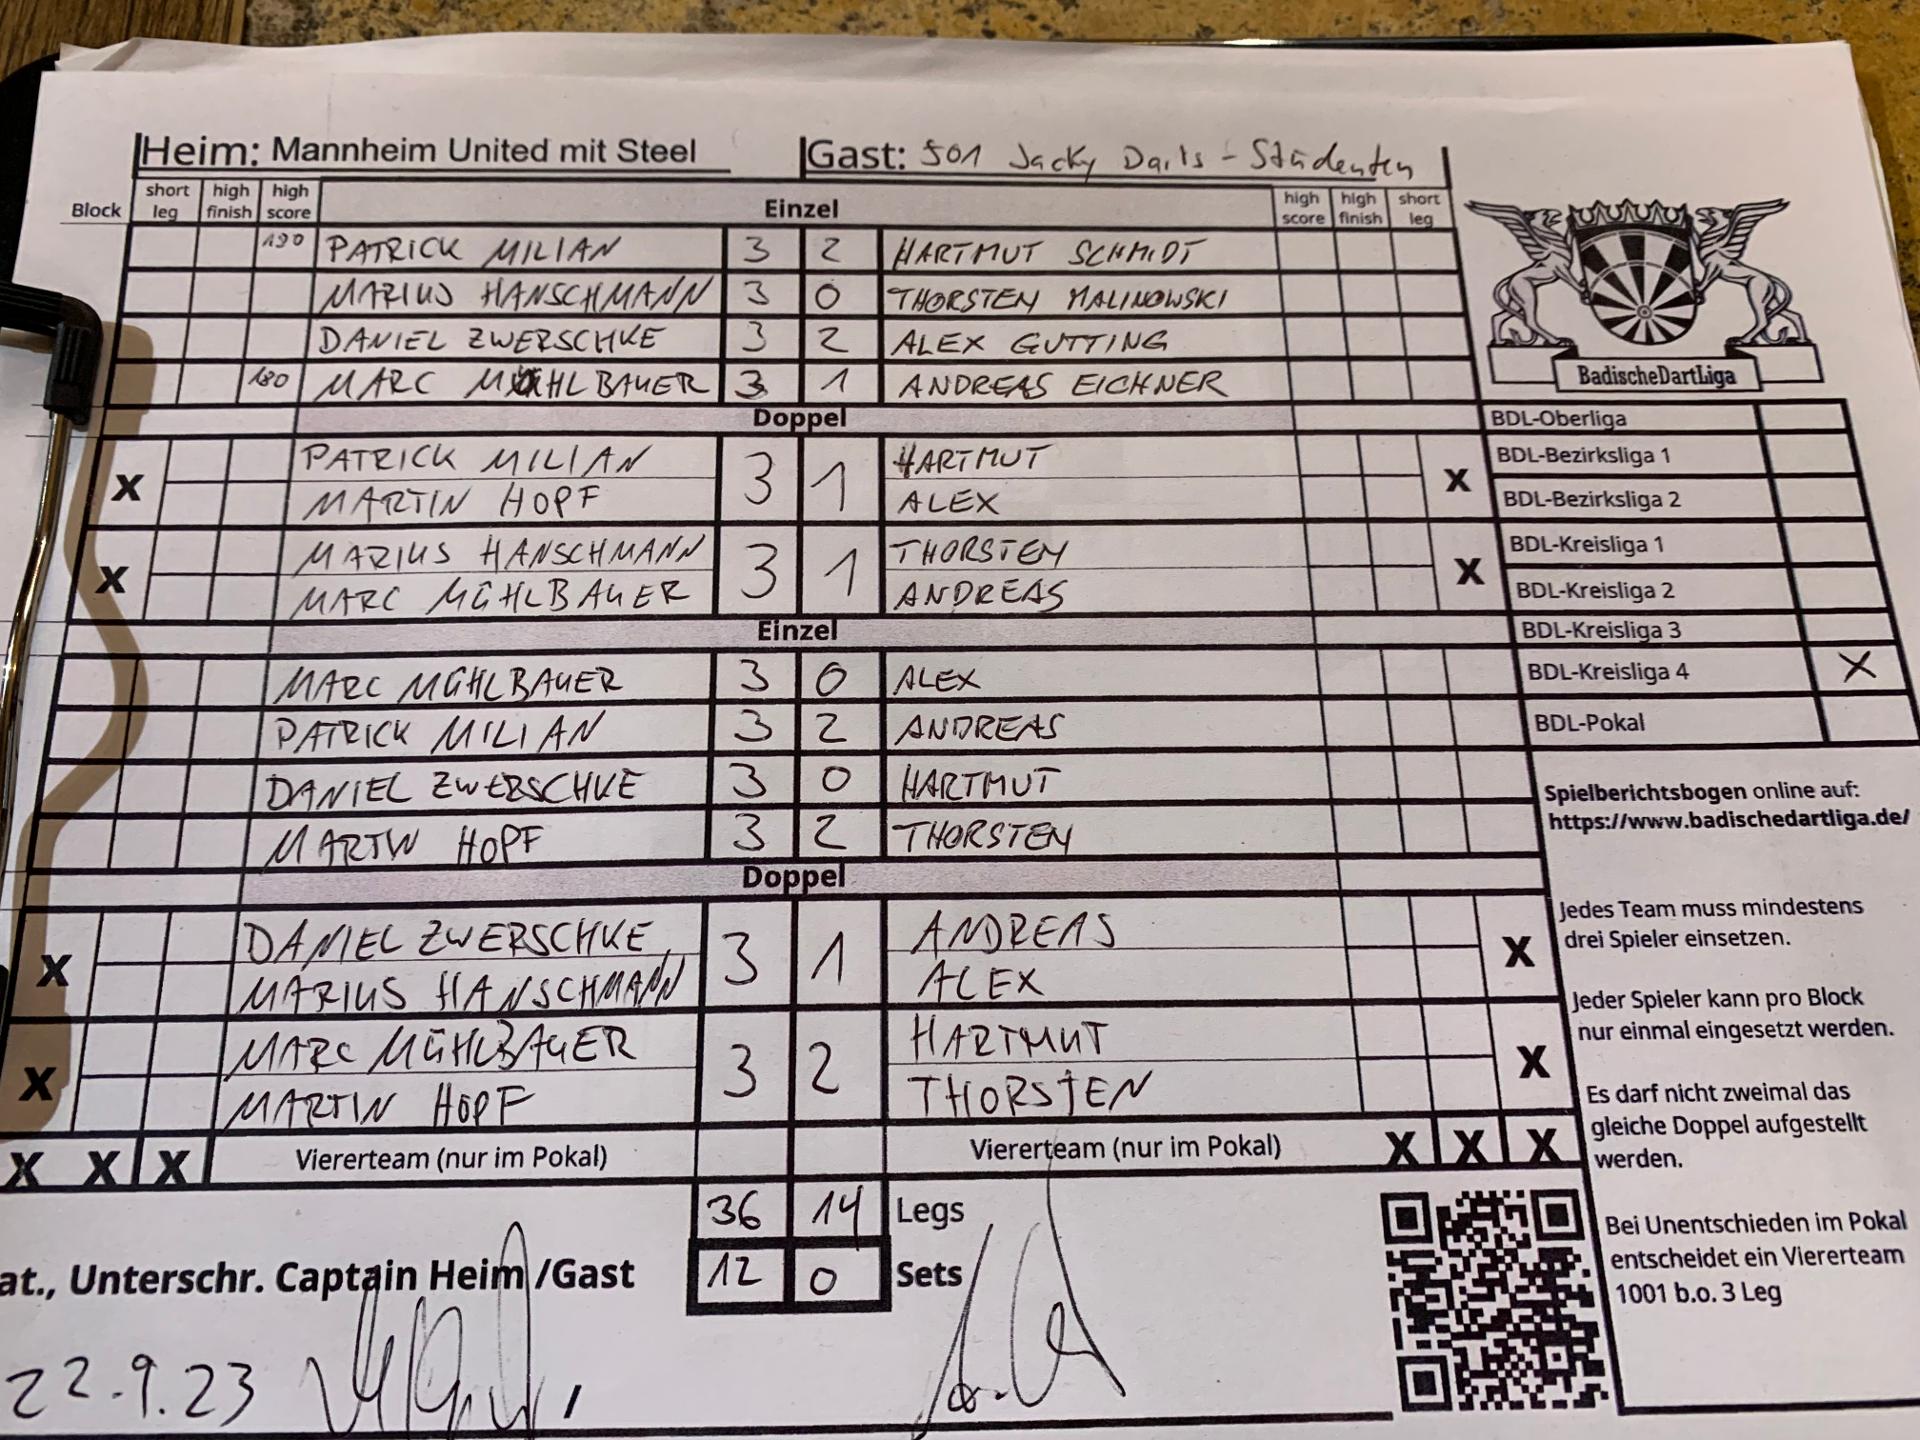 Heim: Mannheim United mit Steel Gast: 501 Jacky Darts - Studenten
Block short leg high finish high score Einzel high score high finish short leg
180 PATRICK MILIAN 3 2 HARTMUT SCHMIDT
MARIUS HANSCHMANN 3 0 THORSTEN MALINOWSKI
DANIEL ZWERSCHKE 3 2 ALEX GUTTING
180 MARC MÜHLBAUER 3 1 ANDREAS EICHNER
Doppel
PATRICK MILIAN HARTMUT
X 3 1 X
MARTIN HOPF ALEX
MARIUS HANSCHMANN THORSTEN
X 3 1 X
MARC MÜHLBAUER ANDREAS
Einzel
MARC MÜHLBAUER 3 0 ALEX
PATRICK MILIAN 3 2 ANDREAS
DANIEL ZWERSCHKE 3 0 HARTMUT
MARTIN HOPF 3 2 THORSTEN
Doppel
DANIEL ZWERSCHKE ANDREAS
X 3 1 X
MARIUS HANSCHMANN ALEX
MARC MÜHLBAUER HARTMUT
X 3 2 X
MARTIN HOPF THORSTEN
X X X Viererteam (nur im Pokal) Viererteam (nur im Pokal) X X X
36 14 Legs
at., Unterschr. Captain Heim /Gast 12 0 Sets
22.9.23
BadischeDartLiga
BDL-Oberliga
BDL-Bezirksliga 1
BDL-Bezirksliga 2
BDL-Kreisliga 1
BDL-Kreisliga 2
BDL-Kreisliga 3
BDL-Kreisliga 4 X
BDL-Pokal
Spielberichtsbogen online auf:
https://www.badischedartliga.de/
Jedes Team muss mindestens
drei Spieler einsetzen.
Jeder Spieler kann pro Block
nur einmal eingesetzt werden.
Es darf nicht zweimal das
gleiche Doppel aufgestellt
werden.
Bei Unentschieden im Pokal
entscheidet ein Viererteam
1001 b.o. 3 Leg